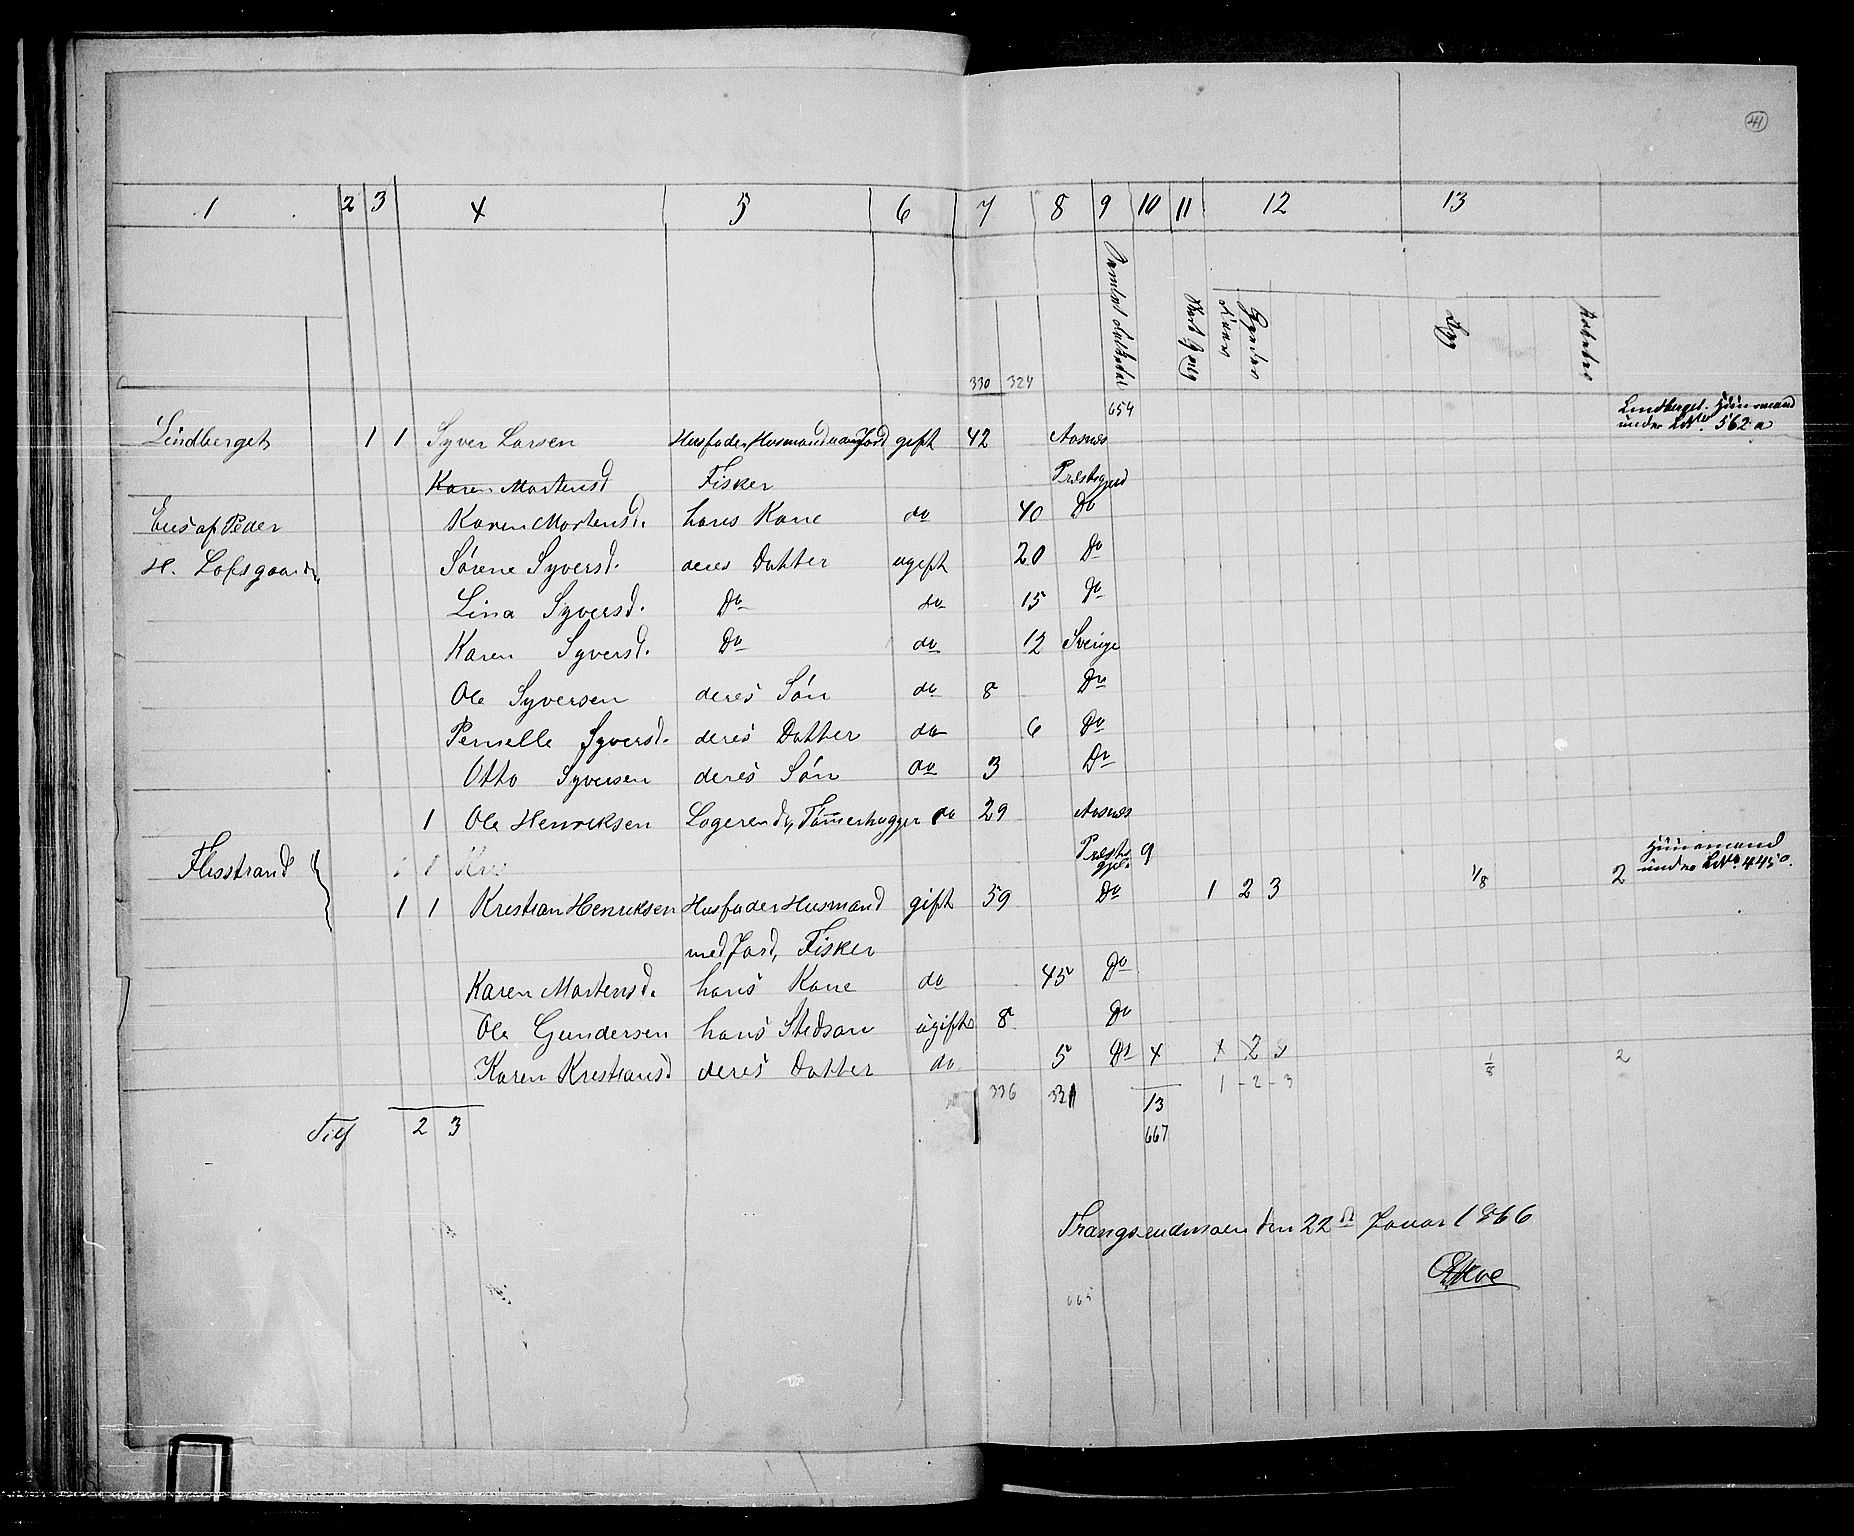 41
1 2 3 4 5 6 7 8 9 10 11 12 13
330 324
654
Lindberget 1 1 Syver Larsen Husfader Husmand uden Jord gift 42 Aasnes Lindberget. Huusmand
under LNo 562 a
Karen Mortensd Fisker Præstegjeld
Eies af Peder Karen Mortensd. hans Kone do 40 Do
H. Lofsgaarden Sørene Syversd. deres Datter ugift 20 Do
Lina Syversd. Do do 15 Do
Karen Syversd. Do do 12 Sverige
Ole Syversen deres Søn do 8 Do
Pernelle Syversd. deres Datter do 6 Do
Otto Syversen deres Søn do 3 Do
1 Ole Henriksen Logerende, Tømerhugger do 29 Aasnes
Flisstrand 1 1 Præstegjeld 9 Huusmand
under LNo 445
Kristian Henriksen Husfader Husmand gift 59 Do 1 2 3 1/8 2
1 1
med Jord, Fisker
Karen Mortensd. hans Kone do 45 Do
Ole Gundersen hans Stedsøn ugift 8 Do
Karen Kristiansd deres Datter do 5 Do 4 1 2 3 1/8 2
336 331 13 1 - 2 - 3
Tils 2 3 667
den 22de Januar 1866
665